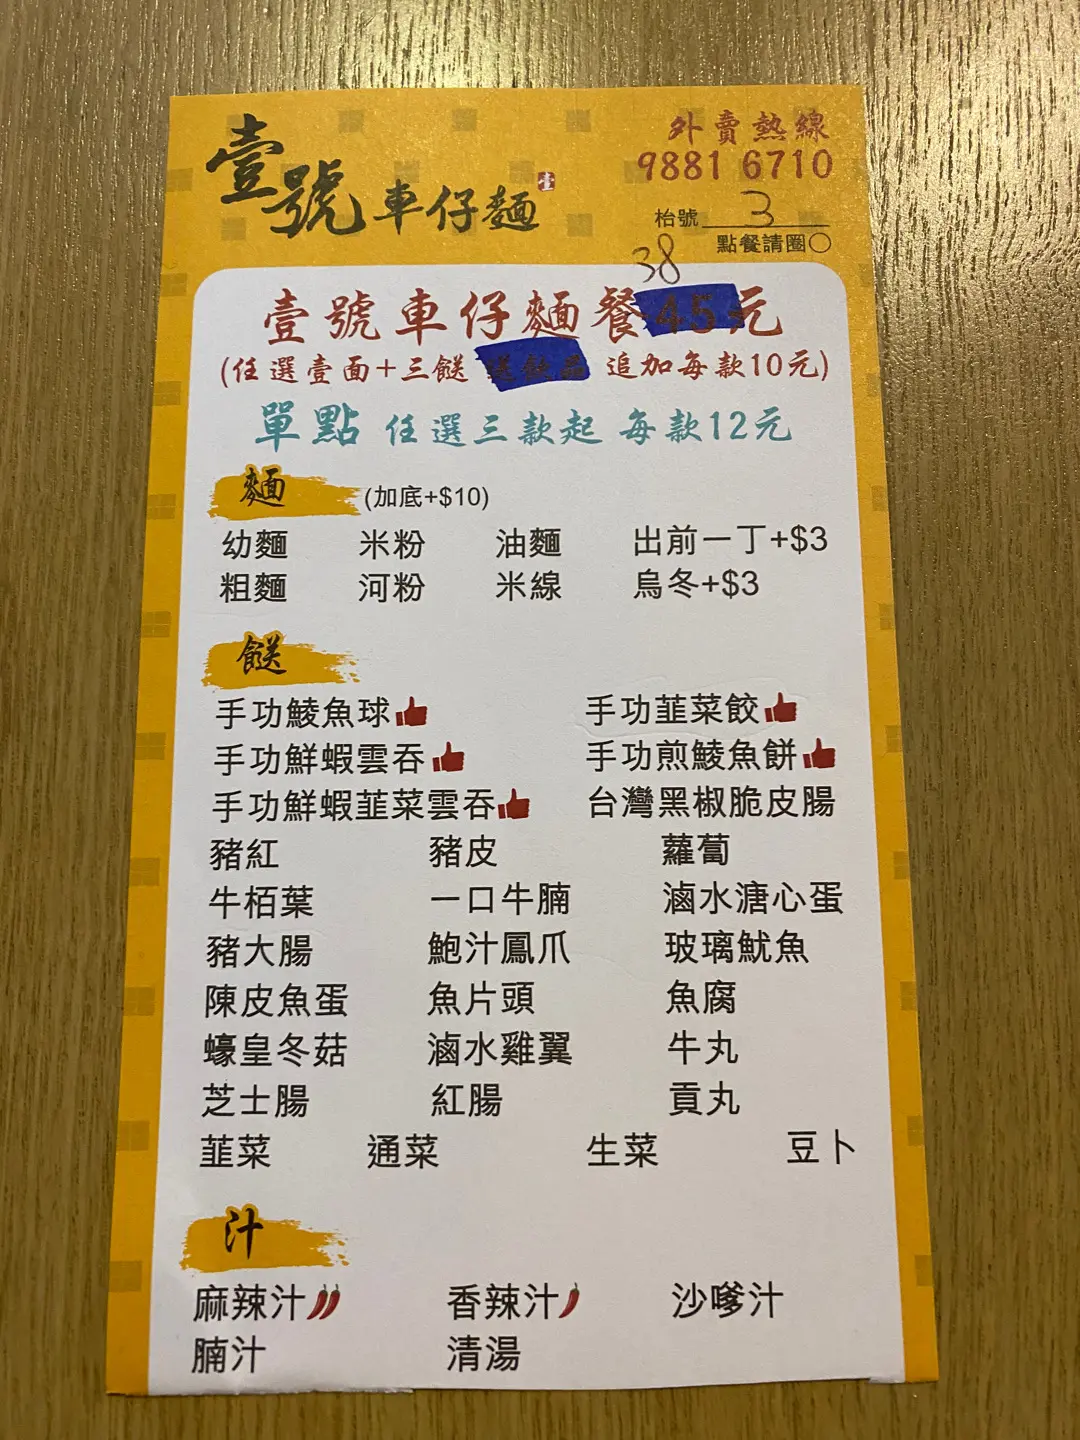 壹號車仔麵
壹
外賣熱線
9881 6710
枱號 3
點餐請圈○
38
壹號車仔麵餐45元
(任選壹面+三餸 送飲品 追加每款10元)
單點 任選三款起 每款12元
麵 (加底+$10)
幼麵 米粉 油麵 出前一丁+$3
粗麵 河粉 米線 烏冬+$3
餸
手功鯪魚球 手功韮菜餃
手功鮮蝦雲吞 手功煎鯪魚餅
手功鮮蝦韮菜雲吞 台灣黑椒脆皮腸
豬紅 豬皮 蘿蔔
牛栢葉 一口牛腩 滷水溏心蛋
豬大腸 鮑汁鳳爪 玻璃魷魚
陳皮魚蛋 魚片頭 魚腐
蠔皇冬菇 滷水雞翼 牛丸
芝士腸 紅腸 貢丸
韮菜 通菜 生菜 豆卜
汁
麻辣汁 香辣汁 沙嗲汁
腩汁 清湯